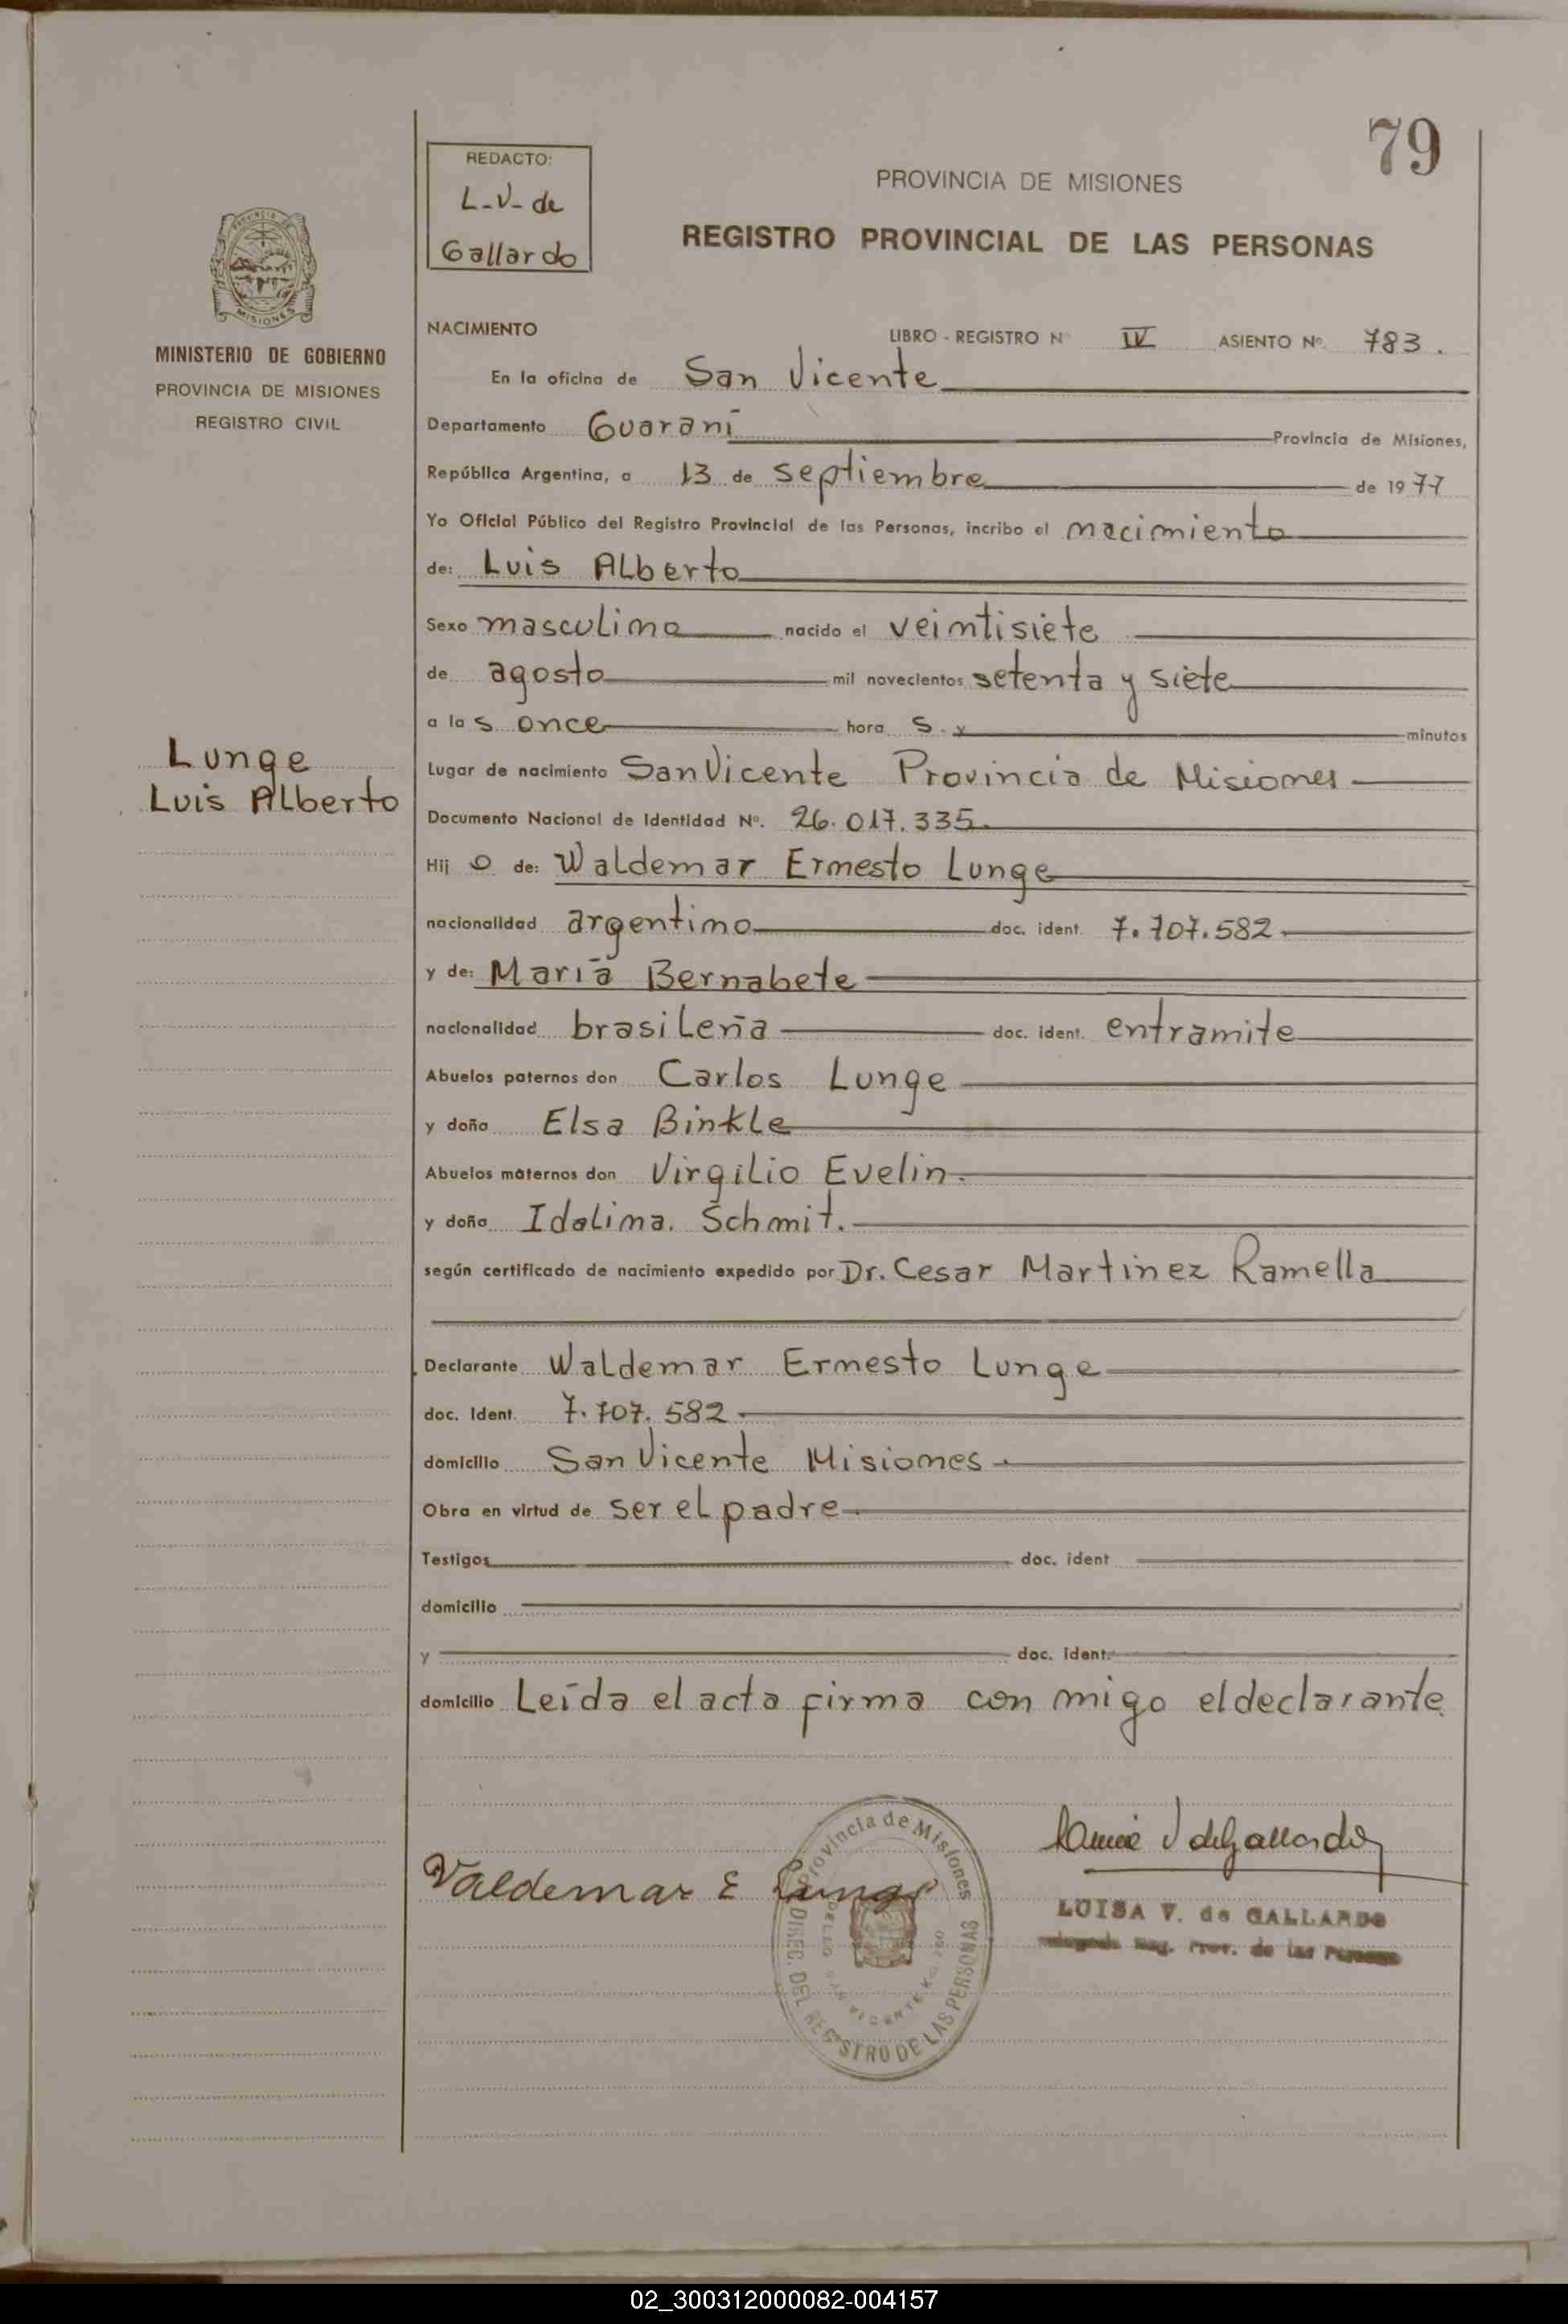 79
REDACTO:
L-V- de
Gallardo
PROVINCIA DE MISIONES
REGISTRO PROVINCIAL DE LAS PERSONAS
MISIONES
MINISTERIO DE GOBIERNO
PROVINCIA DE MISIONES
REGISTRO CIVIL
NACIMIENTO LIBRO - REGISTRO Nº IV ASIENTO Nº 783.
En la oficina de San Vicente
Departamento Guaraní Provincia de Misiones,
República Argentina, a 13 de septiembre de 1977
Yo Oficial Público del Registro Provincial de las Personas, incribo el nacimiento
de: Luis ALberto
Sexo masculino nacido el veintisiete
de agosto mil novecientos setenta y siete
a las once horas. y minutos
Lunge
Luis Alberto
Lugar de nacimiento San Vicente Provincia de Misiones
Documento Nacional de Identidad Nº. 26.017.335.
Hijo de: Waldemar Ernesto Lunge
nacionalidad argentino doc. ident. 7.707.582
y de: María Bernabete
nacionalidad brasileña doc. ident. entramite
Abuelos paternos don Carlos Lunge
y doña Elsa Binkle
Abuelos maternos don Virgilio Evelin.
y doña Idalina. Schmit.
según certificado de nacimiento expedido por Dr. Cesar Martinez Ramella
Declarante Waldemar Ernesto Lunge
doc. Ident. 7.707.582.
domicilio San Vicente Misiones.
Obra en virtud de ser el padre.
Testigos doc. ident
domicilio
y doc. ident.
domicilio Leída el acta firma con migo el declarante.
Valdemar E Lunge
Provincia de Misiones
DIREC. DEL REGISTRO DE LAS PERSONAS
LUISA V. de GALLARDO
Reg. Prov. de las Personas
02_300312000082-004157